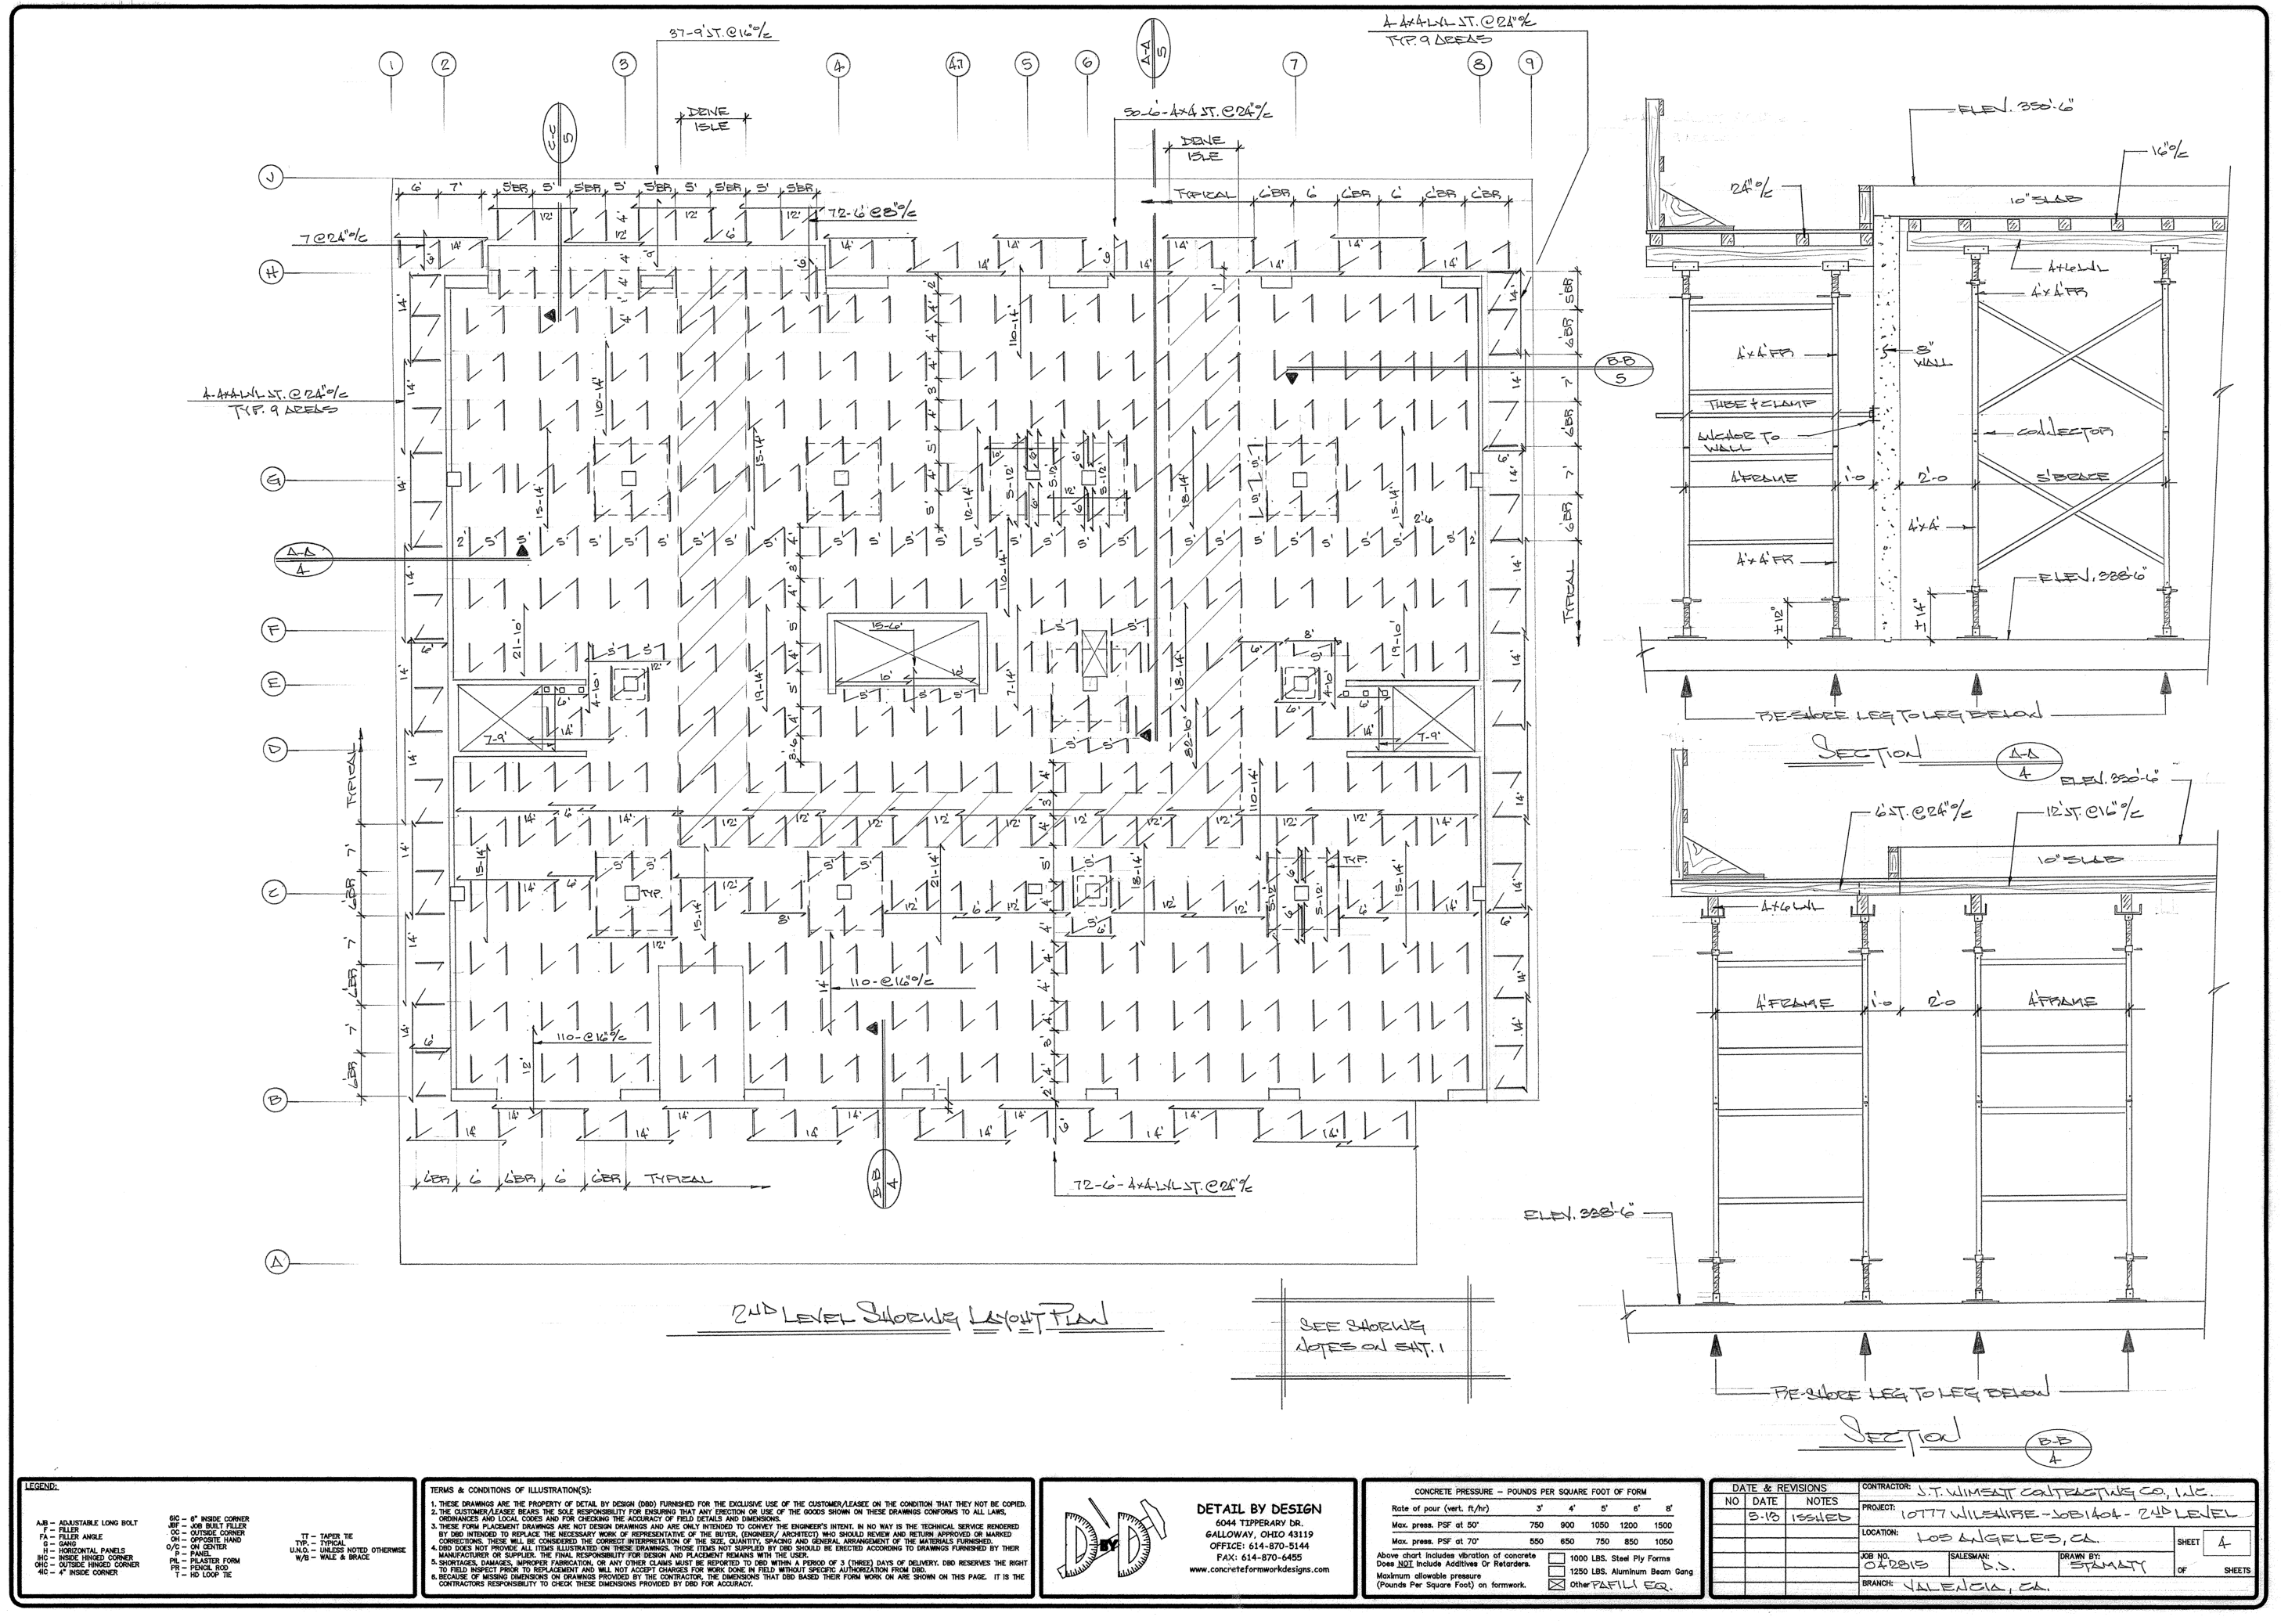 37-9' JT. @ 16" o/c
4-4x4 LVL JT. @ 24" o/c
TYP. 9 AREAS
1
2
3
4
4.7
5
6
7
8
9
A-A
5
C-C
5
DRIVE
ISLE
50-6'-4x4 JT. @ 24" o/c
DRIVE
ISLE
J
6' 7' 5'BR 5' 5'BR 5' 5'BR 5' 5'BR 5' 5'BR
TYPICAL 6'BR 6' 6'BR 6' 6'BR 6'BR
72-6' @ 8" o/c
7 @ 24" o/c
H
B-B
5
4-4x4 LVL JT. @ 24" o/c
TYP. 9 AREAS
110-14'
110-14'
15-14'
15-14'
12-14'
5-12'
5-12'
5-12'
18-14'
15-14'
G
A-A
4
110-14'
F
21-10'
15-6'
19-10'
19-14'
7-14'
18-14'
E
4-10'
4-10'
7-9'
7-9'
D
82-10'
110-14'
TYPICAL
TYPICAL
15-14'
15-14'
21-14'
18-14'
15-14'
TYP.
TYP.
5-12'
5-12'
C
110-@ 16" o/c
110-@ 16" o/c
B
6'BR 6' 6'BR 6' 6'BR TYPICAL
B-B
4
72-6'-4x4 LVL JT. @ 24" o/c
A
2ND LEVEL SHORING LAYOUT PLAN
SEE SHORING
NOTES ON SHT. 1
ELEV. 350'-6"
16" o/c
24" o/c
10" SLAB
4x6 LVL
4'x4' FR
4'x4' FR
8"
WALL
TUBE & CLAMP
ANCHOR TO
WALL
CONNECTOR
4' FRAME 1'-0 2'-0 5' BRACE
4'x4'
4'x4' FR
ELEV. 338'-6"
±12"
±14"
RE-SHORE LEG TO LEG BELOW
SECTION
A-A
4
ELEV. 350'-6"
6' JT. @ 24" o/c
12' JT. @ 16" o/c
10" SLAB
4x6 LVL
4' FRAME 1'-0 2'-0 4' FRAME
ELEV. 338'-6"
RE-SHORE LEG TO LEG BELOW
SECTION
B-B
4
LEGEND:
AJB – ADJUSTABLE LONG BOLT
F – FILLER
FA – FILLER ANGLE
G – GANG
H – HORIZONTAL PANELS
IHC – INSIDE HINGED CORNER
OHC – OUTSIDE HINGED CORNER
4IC – 4" INSIDE CORNER
6IC – 6" INSIDE CORNER
JBF – JOB BUILT FILLER
OC – OUTSIDE CORNER
OH – OPPOSITE HAND
O/C – ON CENTER
P – PANEL
PIL – PILASTER FORM
PR – PENCIL ROD
T – HD LOOP TIE
TT – TAPER TIE
TYP. – TYPICAL
U.N.O. – UNLESS NOTED OTHERWISE
W/B – WALE & BRACE
TERMS & CONDITIONS OF ILLUSTRATION(S):
1. THESE DRAWINGS ARE THE PROPERTY OF DETAIL BY DESIGN (DBD) FURNISHED FOR THE EXCLUSIVE USE OF THE CUSTOMER/LEASEE ON THE CONDITION THAT THEY NOT BE COPIED.
2. THE CUSTOMER/LEASEE BEARS THE SOLE RESPONSIBILITY FOR ENSURING THAT ANY ERECTION OR USE OF THE GOODS SHOWN ON THESE DRAWINGS CONFORMS TO ALL LAWS,
ORDINANCES AND LOCAL CODES AND FOR CHECKING THE ACCURACY OF FIELD DETAILS AND DIMENSIONS.
3. THESE FORM PLACEMENT DRAWINGS ARE NOT DESIGN DRAWINGS AND ARE ONLY INTENDED TO CONVEY THE ENGINEER'S INTENT. IN NO WAY IS THE TECHNICAL SERVICE RENDERED
BY DBD INTENDED TO REPLACE THE NECESSARY WORK OF REPRESENTATIVE OF THE BUYER, (ENGINEER/ ARCHITECT) WHO SHOULD REVIEW AND RETURN APPROVED OR MARKED
CORRECTIONS. THESE WILL BE CONSIDERED THE CORRECT INTERPRETATION OF THE SIZE, QUANTITY, SPACING AND GENERAL ARRANGEMENT OF THE MATERIALS FURNISHED.
4. DBD DOES NOT PROVIDE ALL ITEMS ILLUSTRATED ON THESE DRAWINGS. THOSE ITEMS NOT SUPPLIED BY DBD SHOULD BE ERECTED ACCORDING TO DRAWINGS FURNISHED BY THEIR
MANUFACTURER OR SUPPLIER. THE FINAL RESPONSIBILITY FOR DESIGN AND PLACEMENT REMAINS WITH THE USER.
5. SHORTAGES, DAMAGES, IMPROPER FABRICATION, OR ANY OTHER CLAIMS MUST BE REPORTED TO DBD WITHIN A PERIOD OF 3 (THREE) DAYS OF DELIVERY. DBD RESERVES THE RIGHT
TO FIELD INSPECT PRIOR TO REPLACEMENT AND WILL NOT ACCEPT CHARGES FOR WORK DONE IN FIELD WITHOUT SPECIFIC AUTHORIZATION FROM DBD.
6. BECAUSE OF MISSING DIMENSIONS ON DRAWINGS PROVIDED BY THE CONTRACTOR, THE DIMENSIONS THAT DBD BASED THEIR FORM WORK ON ARE SHOWN ON THIS PAGE. IT IS THE
CONTRACTORS RESPONSIBILITY TO CHECK THESE DIMENSIONS PROVIDED BY DBD FOR ACCURACY.
D BY D
DETAIL BY DESIGN
6044 TIPPERARY DR.
GALLOWAY, OHIO 43119
OFFICE: 614-870-5144
FAX: 614-870-6455
www.concreteformworkdesigns.com
CONCRETE PRESSURE – POUNDS PER SQUARE FOOT OF FORM
Rate of pour (vert. ft/hr) 3' 4' 5' 6' 8'
Max. press. PSF at 50° 750 900 1050 1200 1500
Max. press. PSF at 70° 550 650 750 850 1050
Above chart includes vibration of concrete
Does NOT Include Additives Or Retarders.
Maximum allowable pressure
(Pounds Per Square Foot) on formwork.
1000 LBS. Steel Ply Forms
1250 LBS. Aluminum Beam Gang
Other PAFILI EQ.
DATE & REVISIONS
NO DATE NOTES
5-13 ISSUED
CONTRACTOR: J.T. WIMSATT CONTRACTING CO, INC.
PROJECT: 10777 WILSHIRE - JOB 1404 - 2ND LEVEL
LOCATION: LOS ANGELES, CA.
SHEET 4
JOB NO. 042815
SALESMAN: D.J.
DRAWN BY: STAMATY
OF SHEETS
BRANCH: VALENCIA, CA.